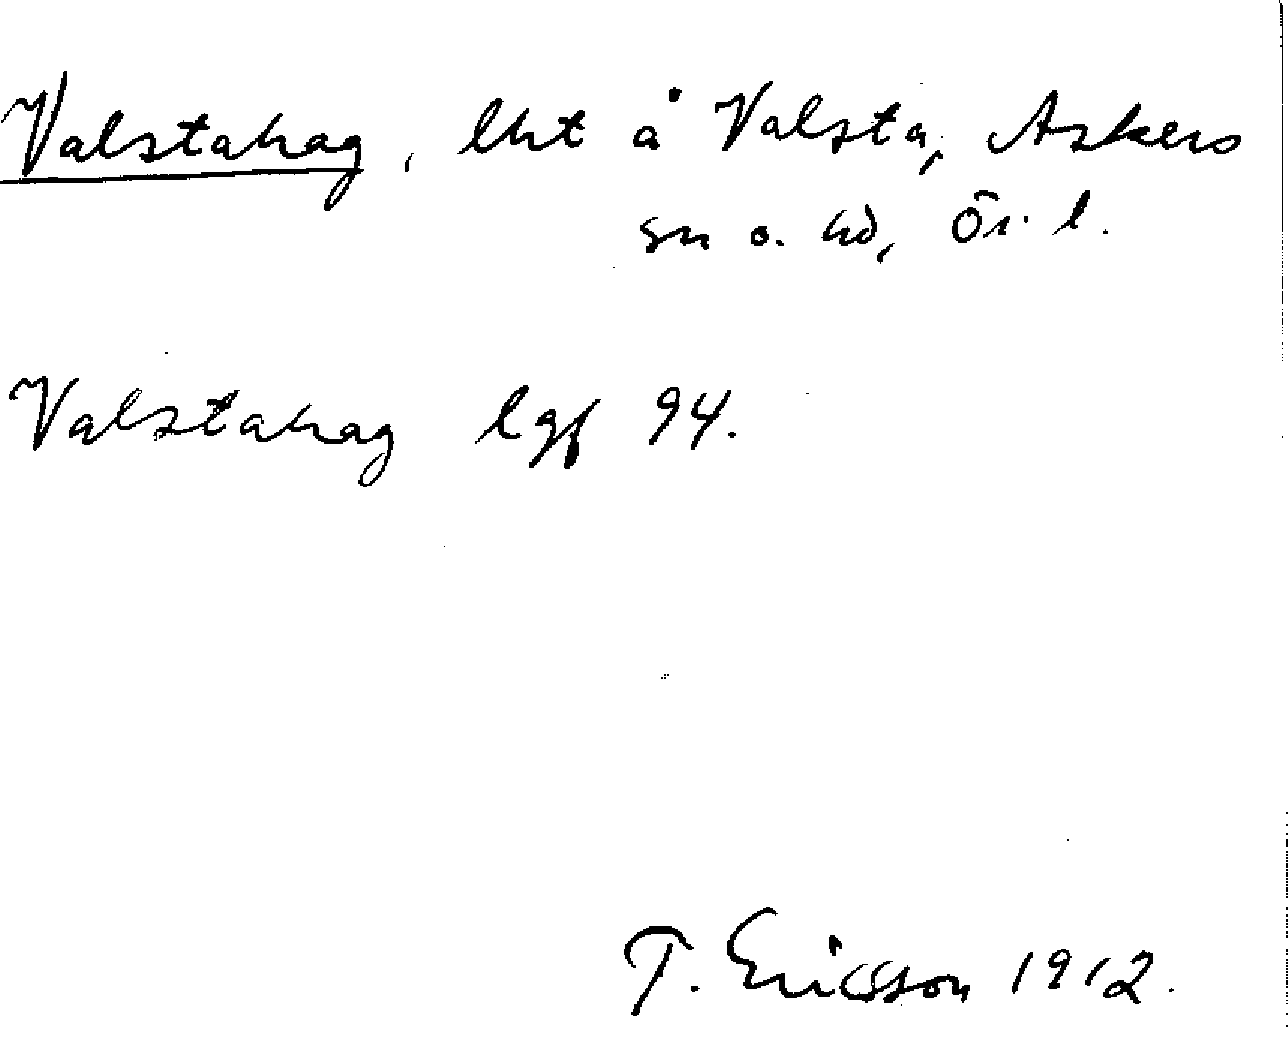 Valstahag, lht å Valsta, Askers
sn o. hd, Ör. l.
Valstahag lgf 94.
T. Ericsson 1912.